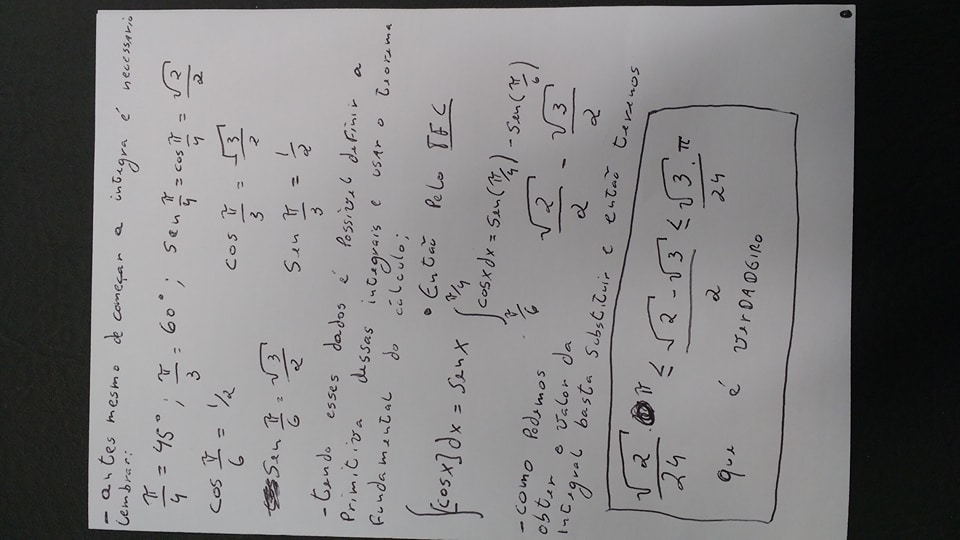 - antes mesmo de começar a integra é necessario
lembrar:
π/4 = 45°; π/3 = 60°; sen π/4 = cos π/4 = √2/2
cos π/6 = 1/2
cos π/3 = √3/2
sen π/6 = √3/2
sen π/3 = 1/2
- tendo esses dados é possivel definir a
Primitiva dessas integrais e usar o teorema
fundamental do cálculo;
• Então pelo TFC
∫[cosx]dx = senx
∫π/6^π/4 cosxdx = sen(π/4) - sen(π/6)
√2/2 - √3/2
- como podemos
obter o valor da
integral basta substituir e então teremos
√2/24 . π ≤ √2 - √3/2 ≤ √3/24 . π
que é verDADEIRO